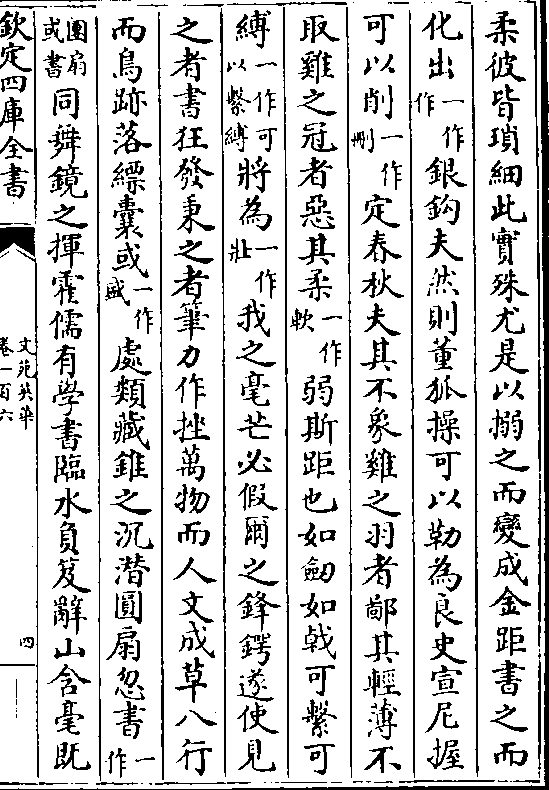 柔彼皆瑣細此實殊尤是以搦之而變成金距書之而
化出一作作銀鈎夫然則董狐操可以勒為良史宣尼握
可以削一作刪定春秋夫其不象雞之羽者鄙其輕薄不
取雞之冠者惡其柔一作軟弱斯距也如劒如戟可繫可
縛一作可以繫縛將為一作壯我之毫芒必假爾之鋒鍔遂使見
之者書狂發秉之者筆力作挫萬物而人文成草八行
而鳥跡落縹囊或一作盛處類藏錐之沉潜圓扇忽書一作
團扇或書同舞鏡之揮霍儒有學書臨水負笈辭山含毫既
欽定四庫全書
文苑英華
卷一百六
四